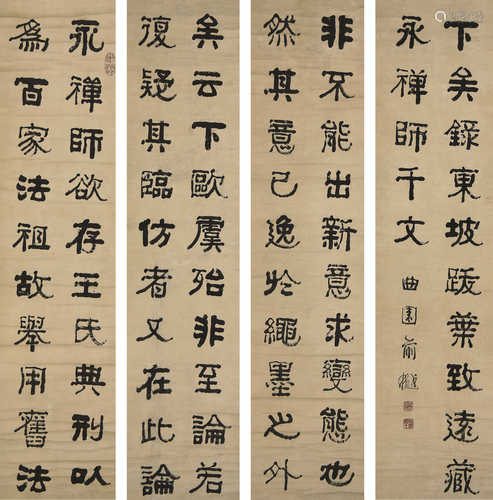 永禪師欲存王氏典刑以
爲百家法祖故舉用舊法
非不能出新意求變態也
然其意已逸於繩墨之外
矣云下歐虞殆非至論若
復疑其臨仿者又在此論
下矣錄東坡跋葉致遠藏
永禪師千文
曲園俞樾